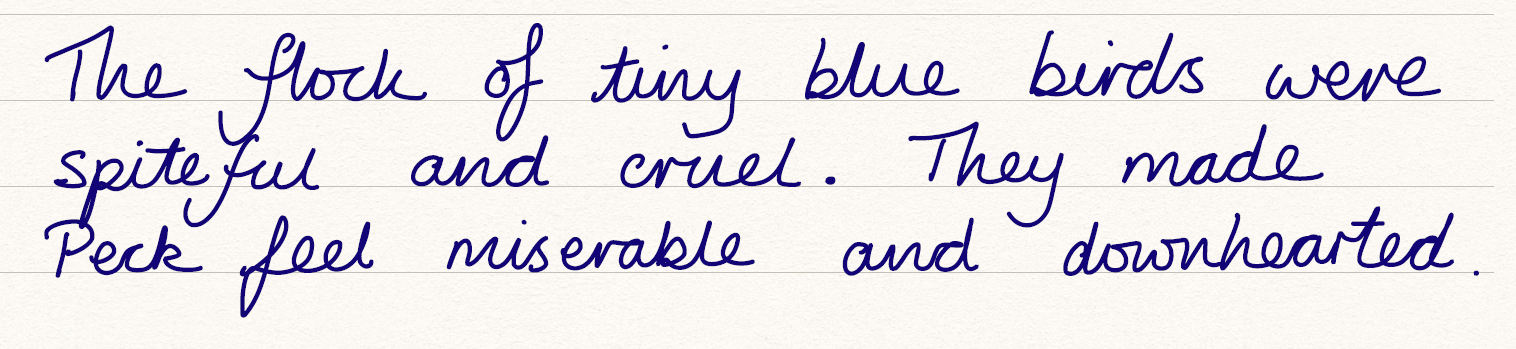 The flock of tiny blue birds were
spiteful and cruel. They made
Peck feel miserable and downhearted.